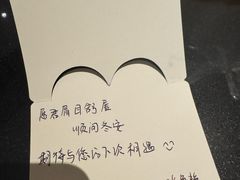 愿君眉目舒展
顺问冬安
期待与您的下次相遇